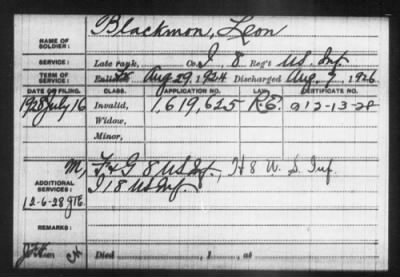 Blackmon, Leon
NAME OF
SOLDIER:
SERVICE: Late rank, Co. I, 8 Reg't US. Inf.
TERM OF
SERVICE: Enlisted Aug 29, 1924 Discharged Aug. 9, 1926
DATE OF FILING. CLASS. APPLICATION NO. LAW. CERTIFICATE NO.
1928 July 16 Invalid, 1,619,625 912-13-28
Widow,
Minor,
ADDITIONAL
SERVICES: M, F & G 8 US Inf., H 8 U. S. Inf.
I 18 US Inf.
12-6-28
REMARKS:
Died , 1 , at